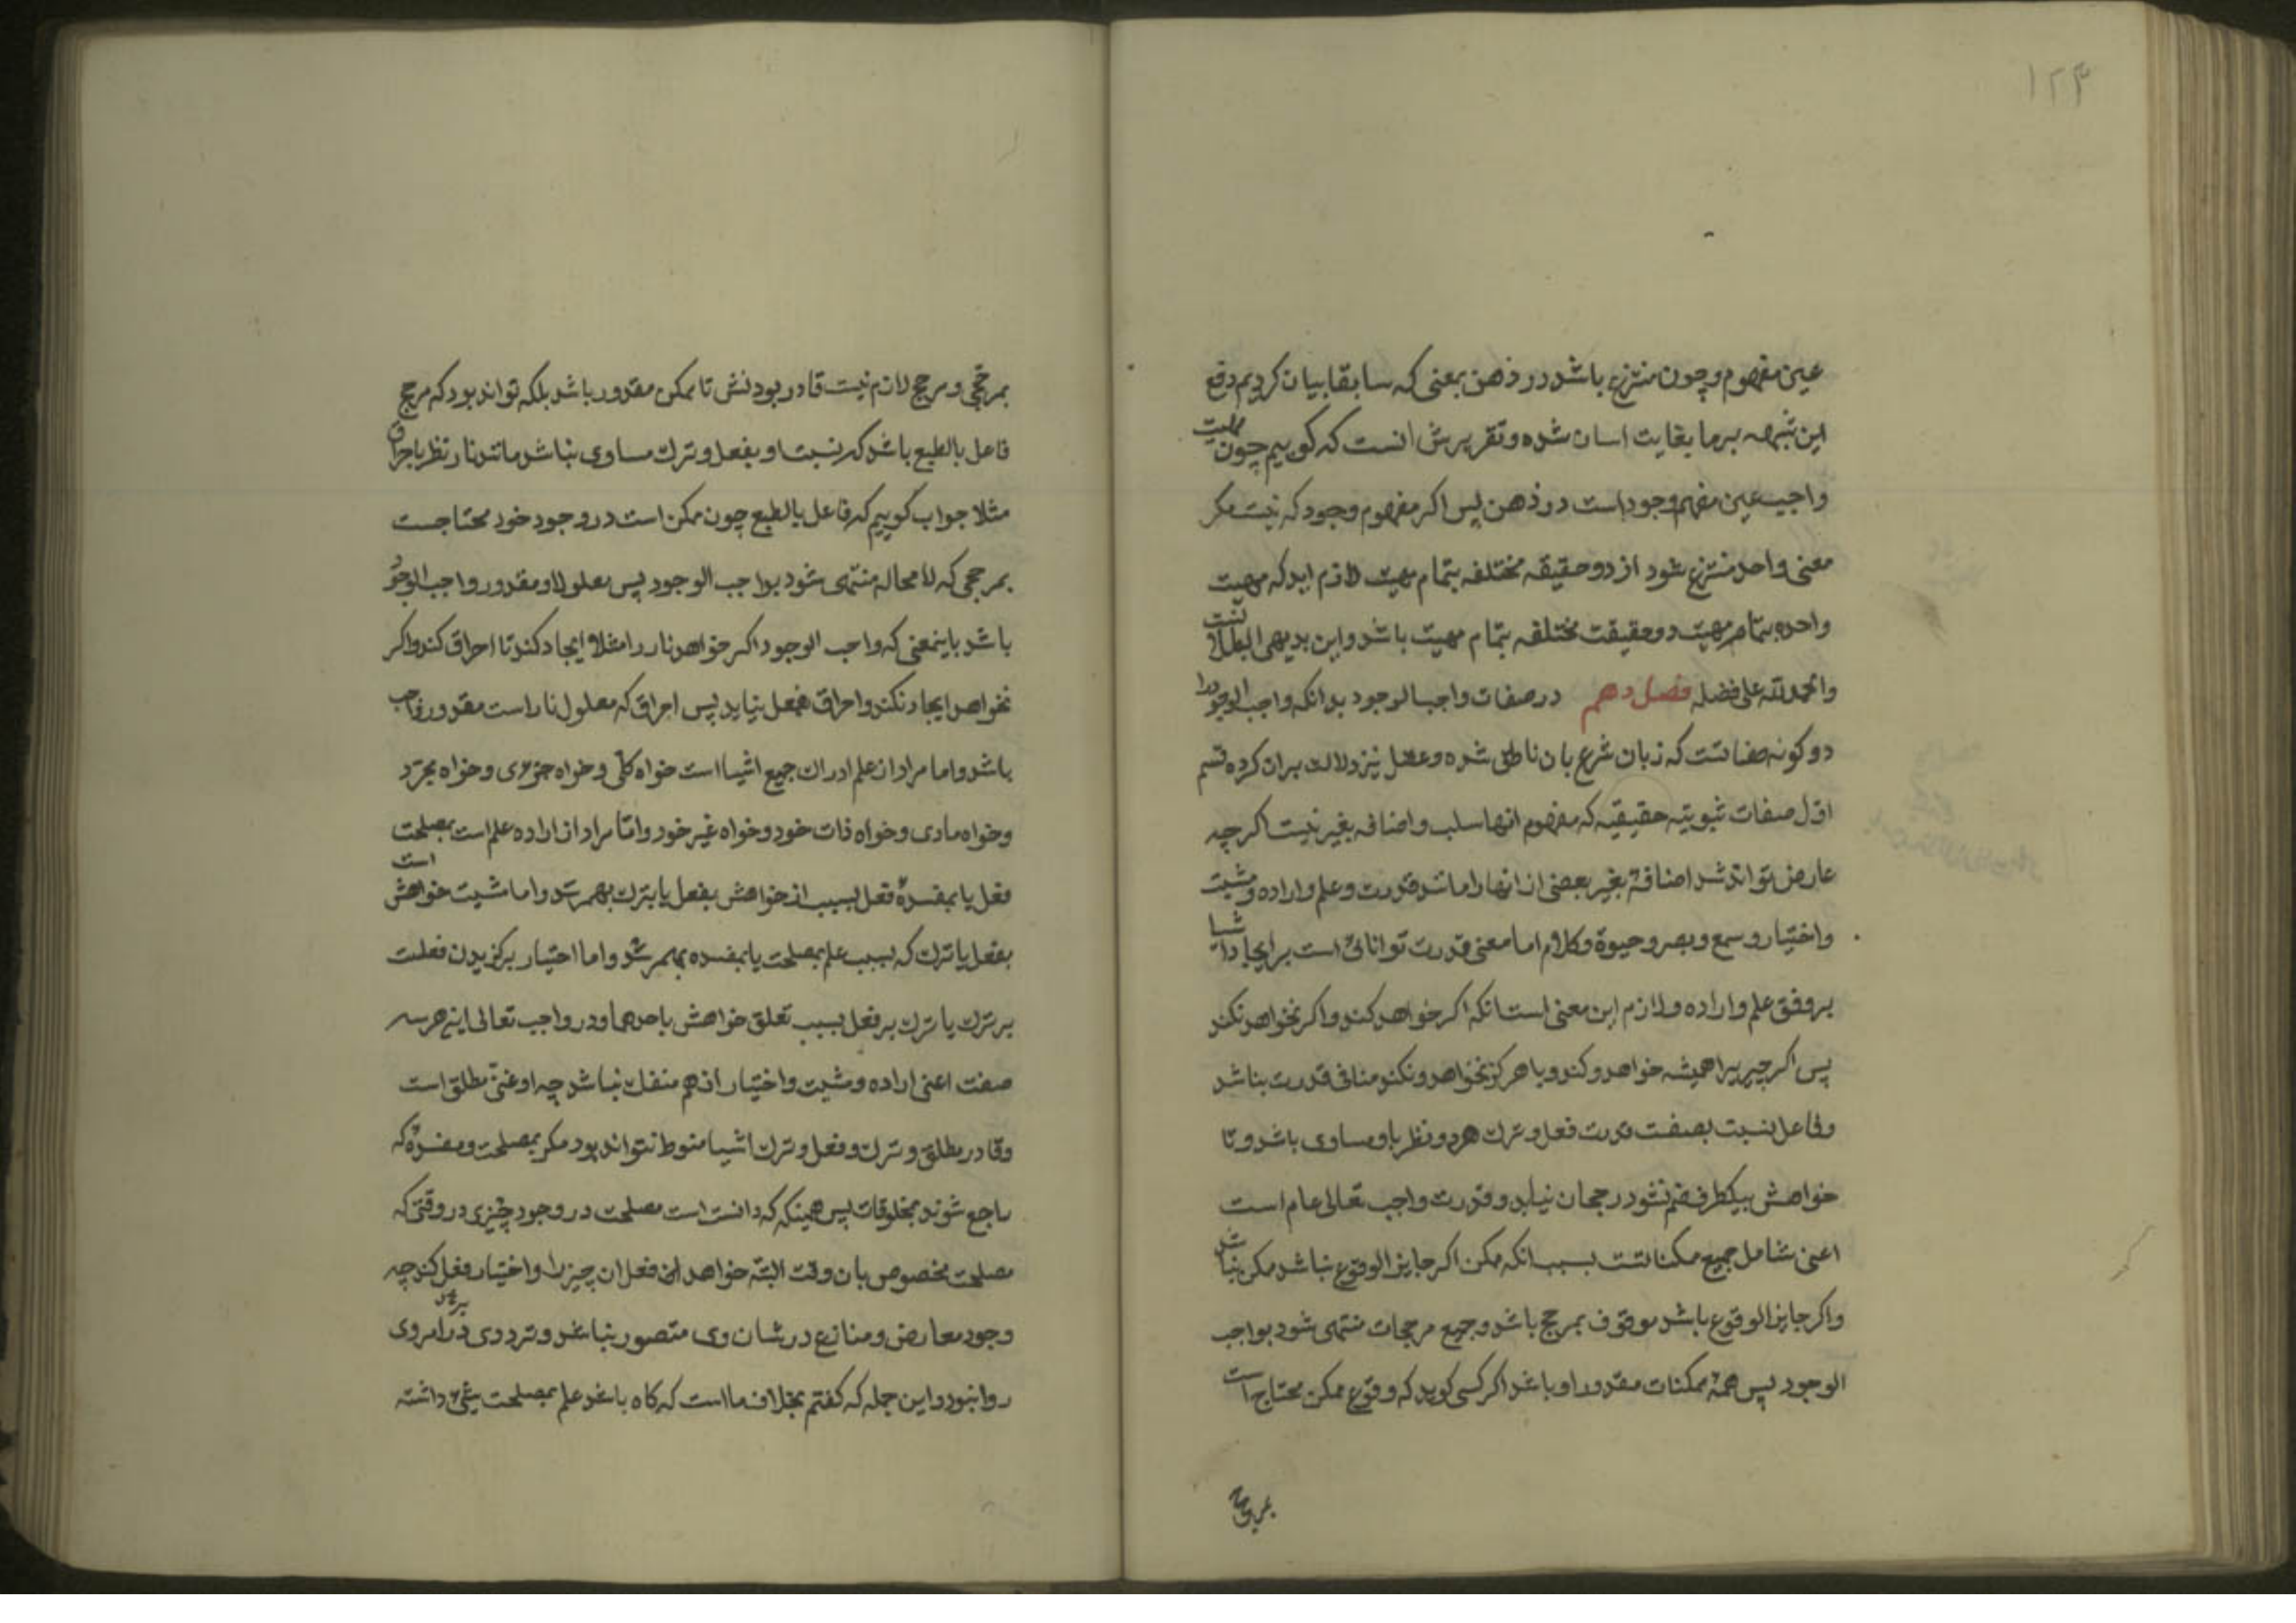 ۱۲۳
عین مفهوم وجود منتزع باشد در ذهن بمعنی که سابقا بیان کردیم دفع
این شبهه بر ما بغایت اسان شده و تقریرش انست که کوییم چون مهیت
واجب عین مفهوم وجود است در ذهن پس اکر مفهوم وجود که نیست مکر
معنی واحد منتزع شود از دو حقیقه مختلفه بتمام مهیت لازم اید که مهیت
واحده بتمام مهیت دو حقیقت مختلفه بتمام مهیت باشد و این بدیهی البطلانست
والحمد لله علی فضله فصل دهم در صفات واجب الوجود بدانکه واجب الوجود را
دو کونه صفاتست که زبان شرع بان ناطق شده و عقل نیز دلالت بران کرده قسم
اول صفات ثبوتیه حقیقیه که مفهوم انها سلب و اضافه بغیر نیست اکرچه
عارض تواند شد اضافهٔ بغیر بعضی از انها را مانند قدرت و علم و اراده و مشیت
و اختیار و سمع و بصر و حیوة و کلام اما معنی قدرت توانائی است بر ایجاد اشیا
بر وفق علم و اراده و لازم این معنی است انکه اکر خواهد کند و اکر نخواهد نکند
پس اکر چیزیرا همیشه خواهد و کند و یا هرکز نخواهد و نکند منافی قدرت نباشد
و فاعل نسبت بصفت قدرت فعل و ترک هر دو نظر باو مساوی باشد و تا
خواهش بیکطرف ضم نشود رجحان نیابد و قدرت واجب تعالی عام است
اعنی شامل جمیع ممکناتست بسبب انکه ممکن اکر جایز الوقوع نباشد ممکن نباشد
و اکر جایز الوقوع باشد موقوف بمرجح باشد و جمیع مرجحات منتهی شود بواجب
الوجود پس همهٔ ممکنات مقدور او باشد اکر کسی کوید که وقوع ممکن محتاج است
بمرجحی
بمرجحی و مرجح لازم نیست قادر بودنش تا ممکن مقدور باشد بلکه تواند بود که مرجح
فاعل بالطبع باشد که نسبت او بفعل و ترک مساوی نباشد مانند نار نظر باحراق
مثلا جواب کوییم که فاعل بالطبع چون ممکن است در وجود خود محتاجست
بمرجحی که لا محاله منتهی شود بواجب الوجود پس معلول او مقدور واجب الوجود
باشد باینمعنی که واجب الوجود اکر خواهد نار را مثلا ایجاد کند تا احراق کند و اکر
نخواهد ایجاد نکند و احراق بفعل نیاید پس احراق که معلول نار است مقدور واجب
باشد و اما مراد از علم ادراک جمیع اشیا است خواه کلی و خواه جزوی و خواه مجرد
و خواه مادی و خواه ذات خود و خواه غیر خود و اما مراد از اراده علم است بمصلحت
فعل یا بمفسدهٔ فعل بسبب از خواهش بفعل یا بترک بهم رسد و اما مشیت خواهش است
بفعل یا ترک که بسبب علم بمصلحت یا بمفسده بهم رسد و اما اختیار برکزیدن فعلست
بر ترک یا ترک بر فعل بسبب تعلق خواهش باحدهما و در واجب تعالی این هر سه
صفت اعنی اراده و مشیت و اختیار از هم منفک نباشد چه او غنی مطلق است
و قادر مطلق و ترک و فعل و ترک اشیا منوط نتواند بود مکر بمصلحت و مفسدهٔ که
راجع شوند بمخلوقات پس همینکه که دانسته است مصلحت در وجود چیزی در وقتی که
مصلحت مخصوص بان وقت البته خواهد ان فعل ان چیز را و اختیار فعل کند چه
وجود معارض و منازع در شان وی متصور نباشد و تردد در امر وی
روا نبود و این جمله که کفتم بخلاف ما است که کاه باشد علم بمصلحت شیٔ داشته